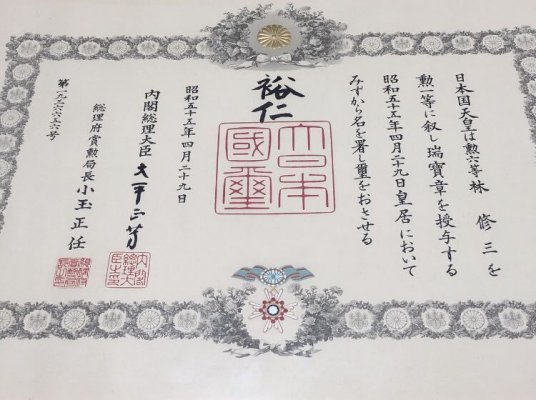 日本国天皇は勲六等林 修三を
勲一等に叙し瑞寶章を授与する
昭和五十五年四月二十九日皇居において
みずから名を署し璽をおさせる
裕仁
大日本國璽
昭和五十五年四月二十九日
内閣総理大臣 大平正芳
内閣総理大臣之印
総理府賞勲局長 小玉正任